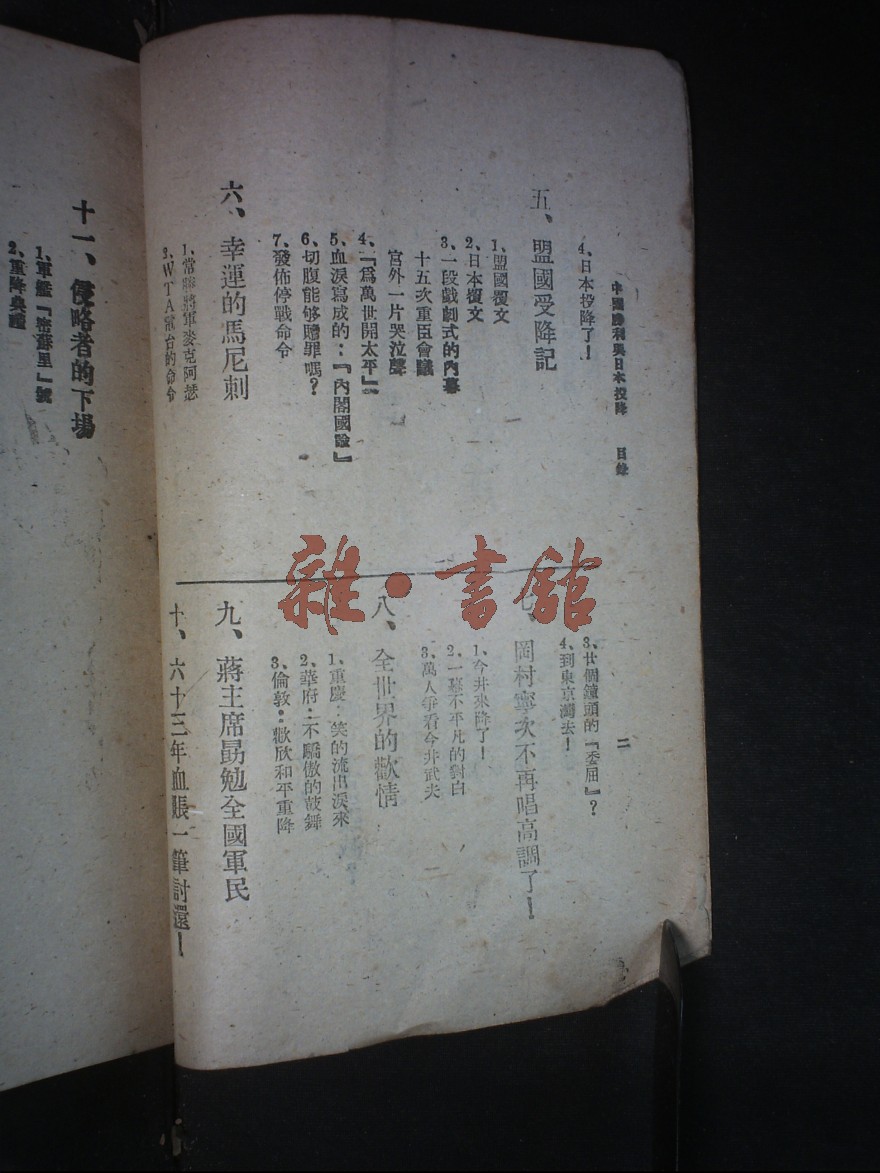 中國勝利與日本投降 目錄
二
4、日本投降了！
五、盟國受降記
1、盟國覆文
2、日本覆文
3、一段戲劇式的內幕
十五次重臣會議
宮外一片哭泣聲
4、『爲萬世開太平』
5、血淚寫成的：『內閣國諭』
6、切腹能够贖罪嗎？
7、發佈停戰命令
六、幸運的馬尼剌
1、常勝將軍麥克阿瑟
2、WTA電台的命令
3、廿個鏡頭的『委屈』？
4、到東京灣去！
七、岡村寧次不再唱高調了！
1、今井來降了！
2、一幕不平凡的對白
3、萬人爭看今井武夫
八、全世界的歡情
1、重慶：笑的流出淚來
2、華府：不驕傲的鼓舞
3、倫敦：歡欣和平重降
九、蔣主席勗勉全國軍民
十、六十三年血賬一筆討還！
十一、侵略者的下場
1、軍艦『密蘇里』號
2、重降典禮
雜·書舘